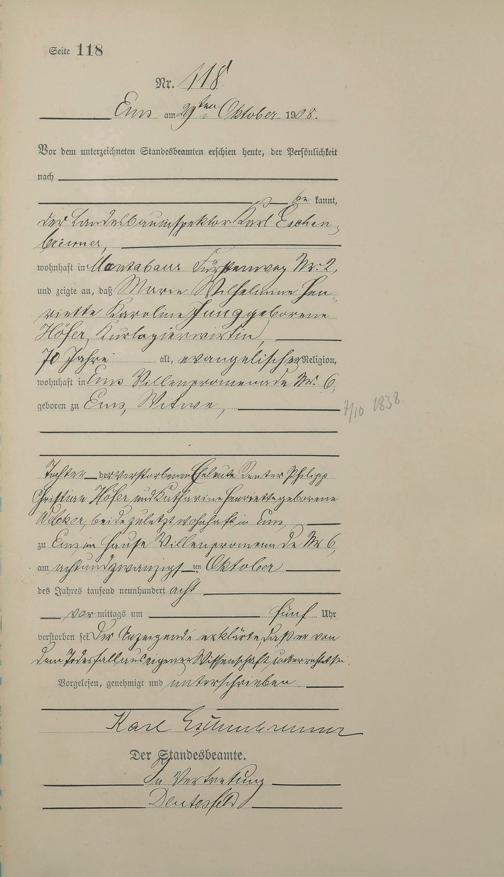 Seite 118
Nr. 118
Ems am 29ten Oktober 1908.
Vor dem unterzeichneten Standesbeamten erschien heute, der Persönlichkeit
nach
be kannt,
der Landesbauinspektor Karl Eschen-
brenner,
wohnhaft in Montabaur Fürstenweg Nr. 2,
und zeigte an, daß Marie Wilhelmine Hen-
riette Karoline Jung geborene
Höfer, Kurlogierwirtin,
70 Jahre alt, evangelischer Religion,
wohnhaft in Ems Villenpromenade Nr. 6,
geboren zu Ems, Witwe,
7/10 1838
Tochter der verstorbenen Eheleute Rentner Philipp
Christian Höfer und Katharine Henriette geborene
beide zuletzt wohnhaft in Ems,
zu Ems im Hause Villenpromenade Nr. 6,
am achtundzwanzigsten Oktober
des Jahres tausend neunhundert acht
vor mittags um fünf Uhr
verstorben sei. Der Anzeigende erklärte, daß er von
dem Todesfall aus eigener Wissenschaft unterrichtet sei.
Vorgelesen, genehmigt und unterschrieben
Karl Eschenbrenner
Der Standesbeamte.
In Vertretung